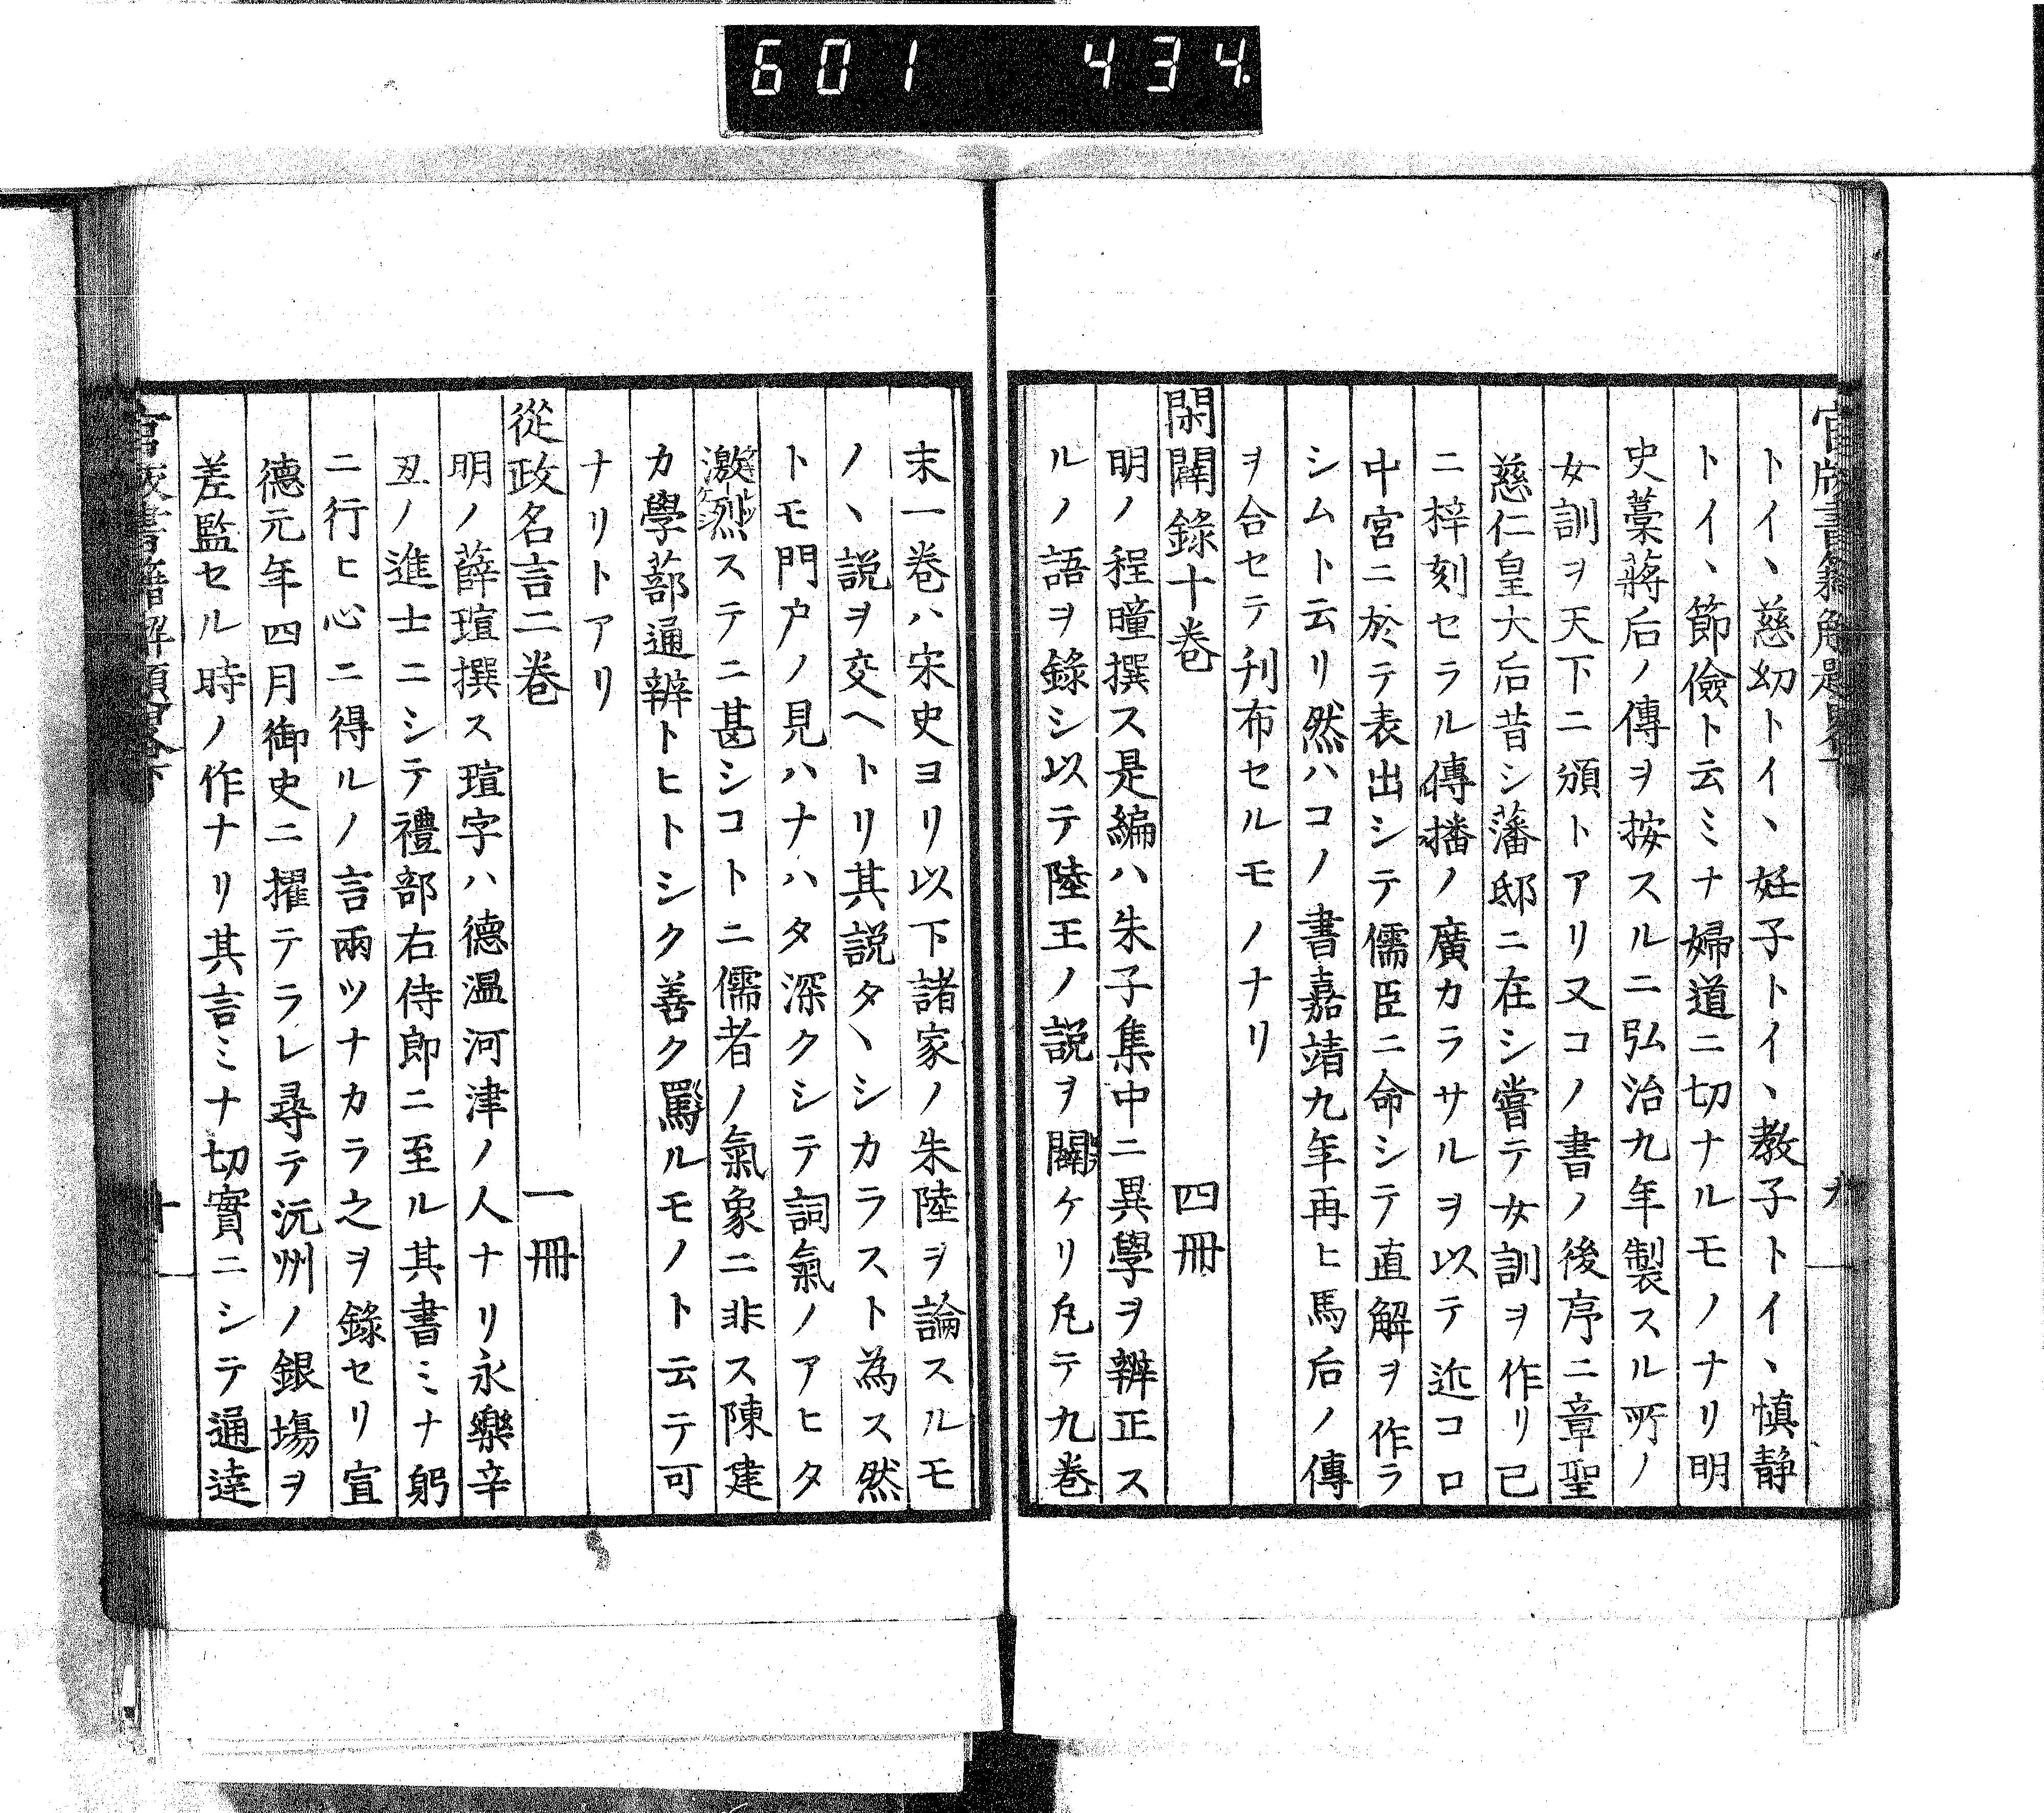 601 434.
官版書籍解題畧下
九
トイヽ慈幼トイヽ妊子トイヽ教子トイヽ慎静
トイヽ節儉ト云ミナ婦道ニ切ナルモノナリ明
史藁蔣后ノ傳ヲ按スルニ弘治九年製スル所ノ
女訓ヲ天下ニ頒トアリ又コノ書ノ後序ニ章聖
慈仁皇大后昔シ藩邸ニ在シ嘗テ女訓ヲ作リ已
ニ梓刻セラル傳播ノ廣カラサルヲ以テ近コロ
中宮ニ於テ表出シテ儒臣ニ命シテ直解ヲ作ラ
シムト云リ然ハコノ書嘉靖九年再ヒ馬后ノ傳
ヲ合セテ刊布セルモノナリ
閑闢錄十卷 四冊
明ノ程曈撰ス是編ハ朱子集中ニ異學ヲ辨正ス
ルノ語ヲ錄シ以テ陸王ノ説ヲ闢ケリ凡テ九巻
末一巻ハ宋史ヨリ以下諸家ノ朱陸ヲ論スルモ
ノヽ説ヲ交ヘトリ其説タヽシカラスト為ス然
トモ門戸ノ見ハナハタ深クシテ詞氣ノアヒタ
激烈ステニ甚シコトニ儒者ノ氣象ニ非ス陳建
カ學蔀通辨トヒトシク善ク罵ルモノト云テ可
ナリトアリ
從政名言二巻 一冊
明ノ薛瑄撰ス瑄字ハ德温河津ノ人ナリ永樂辛
丑ノ進士ニシテ禮部右侍郎ニ至ル其書ミナ躬
ニ行ヒ心ニ得ルノ言兩ツナカラ之ヲ錄セリ宣
德元年四月御史ニ擢テラレ尋テ沅州ノ銀塲ヲ
差監セル時ノ作ナリ其言ミナ切實ニシテ通達
官版書籍解題畧下
十